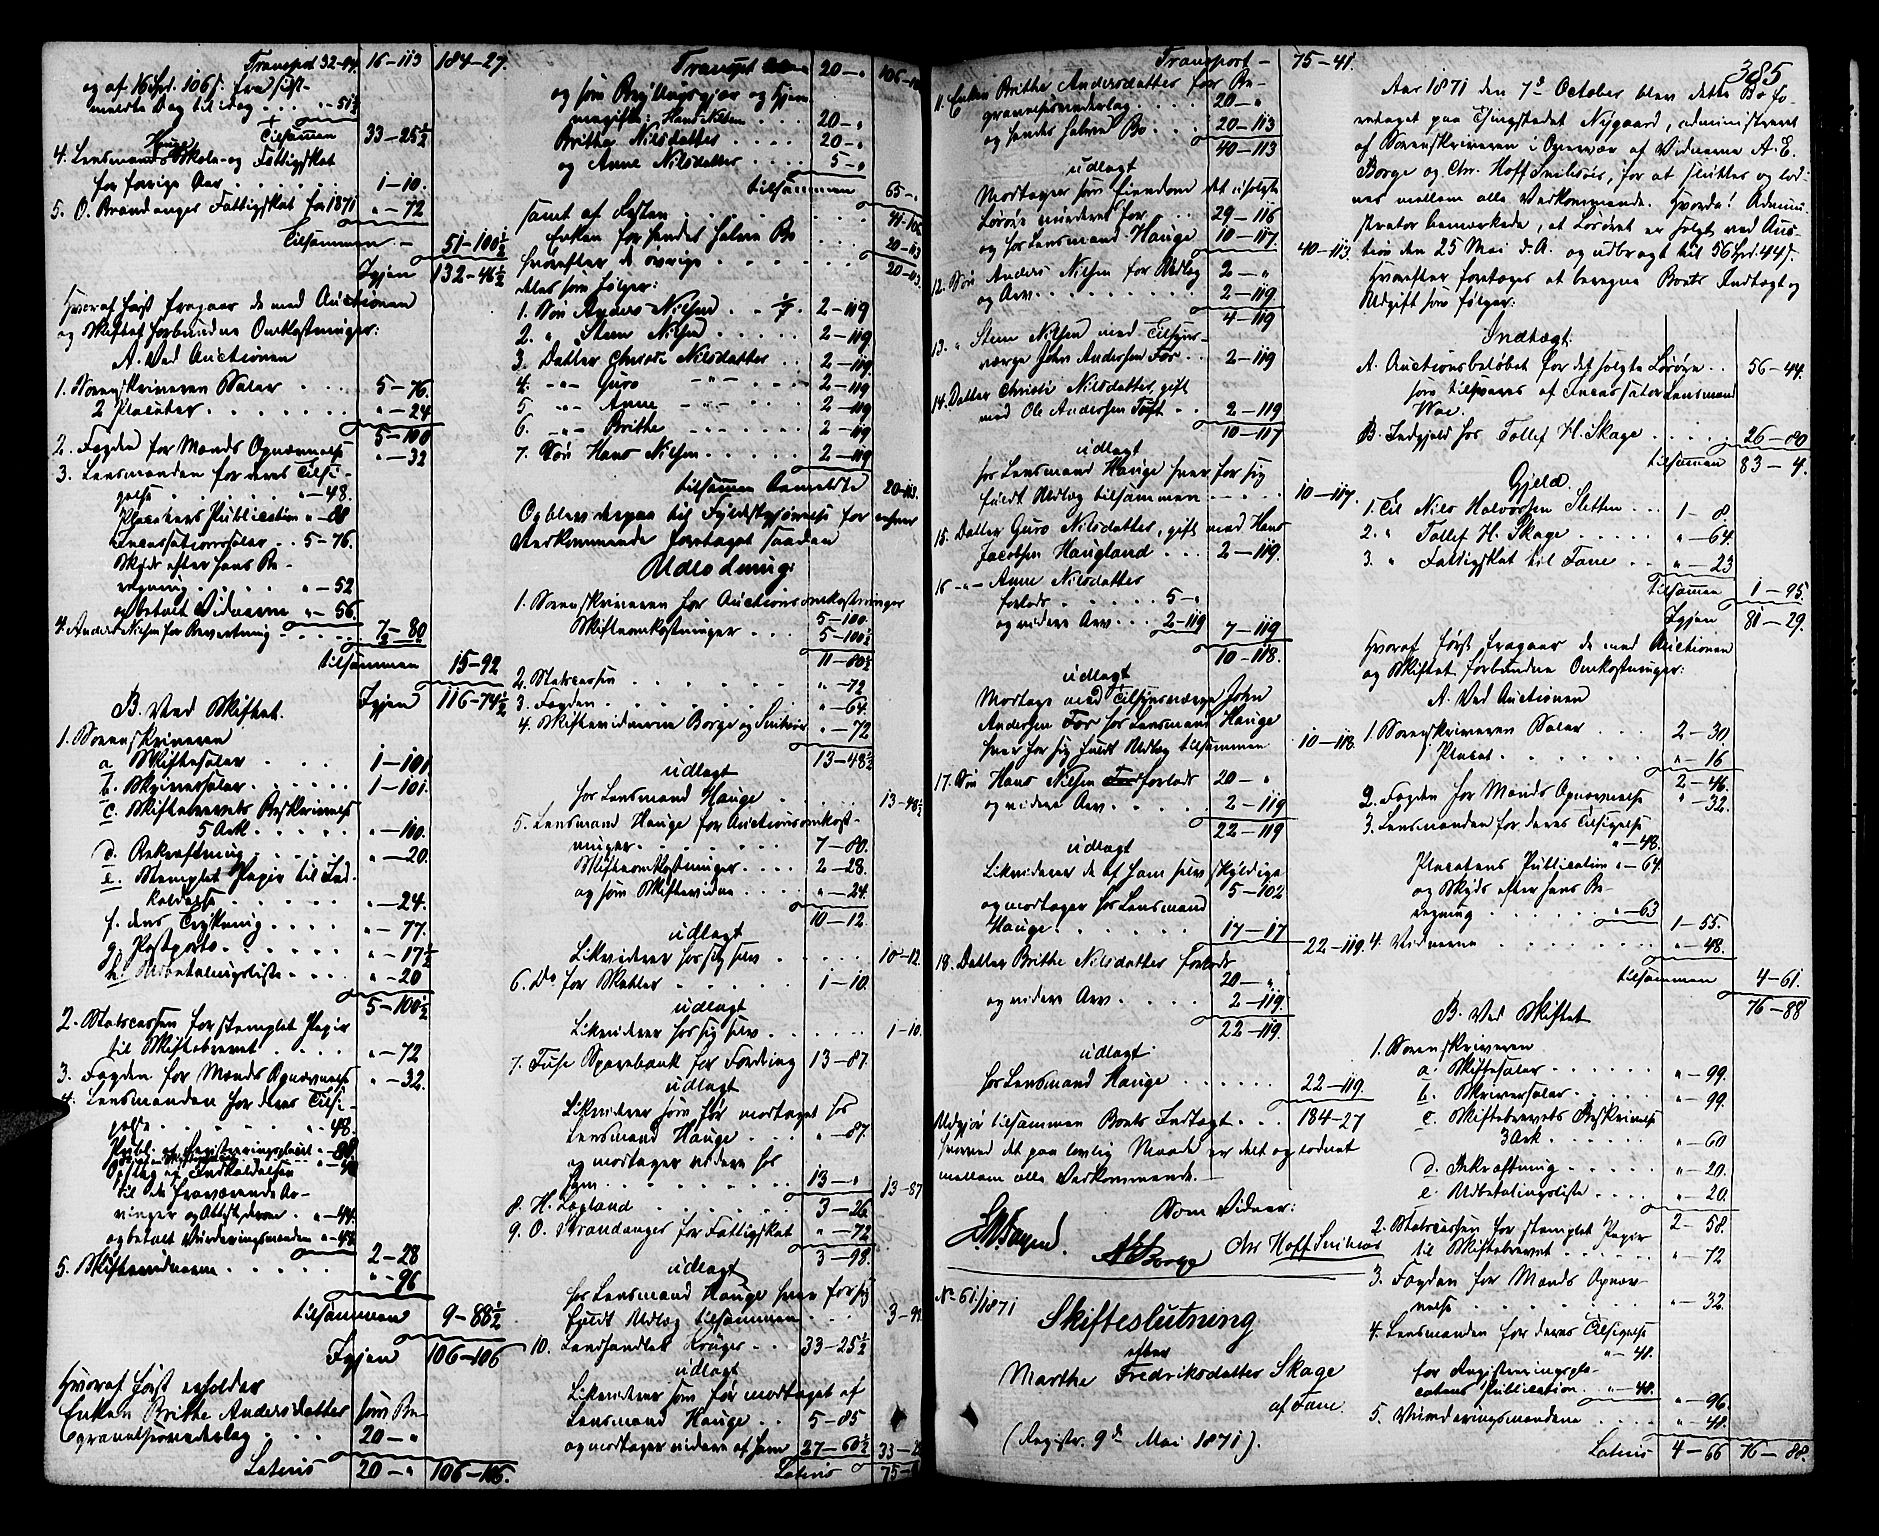 Transport 32-94. 16-113 184-27.
og af 16 Spd. 106 s. fra sidst-
meldte Dag til idag . . „-51½
Tilsammen 33-25½
4. Lensmand Hauge Skole- og Fattigskat
for forrige Aar . . . . 1-10.
5. O. Brandanger Fattigskat for 1871 „-72
Tilsammen - 51-100½
Igjen 132-46½
Hvoraf først fragaar de med Auctionen
og Skiftet forbundne Omkostninger:
A. Ved Auctionen
1. Sorenskriveren Salær . . . 5-76.
2 Placater . . . . . . „-24
5-100
2. Fogden for Mands Opnævnelse „-32
3. Lensmanden for deres Tilsi-
gelse . . . . „-48.
Placaters Publication „-88
Incassationssalær . . 5-76.
Skyds efter hans Be-
regning . . . . „-52
og betalt Vidnerne „-56.
4. Anders Nilsen for Bevertning - . . . 7-80
tilsammen 15-92
Igjen 116-74½
B. Ved Skiftet.
1. Sorenskriveren
a Skiftesalær . . . . 1-101
b. Skriversalær . . . . 1-101.
c. Skiftebrevets Beskrivelse
5 Ark . . . . . „-100.
d. Bekræftning . . . . „-20.
e. Stemplet Papir til Ind-
kaldelse . . . . „-24.
f. dens Trykning . . . . „-77.
g. Postporto . . . . . „-17½
h. Udbetalingsliste . . . . „-20
5-100½
2. Statscassen for stemplet Papir
til Skiftebrevet . . . . „-72
3. Fogden for Mands Opnævnelse „-32.
4. Lensmanden for deres Tilsi-
gelse . . . . . „-48.
Publ. af Registreringsplacat „-88.
Opslag af Indkaldelsen „-48
til de fraværende Ar-
vinger og Attest derom . „-44.
og betalt Vurderingsmænden „-48
2-28
5. Skiftevidnerne . . . . . „-96
tilsammen 9-88½
Igjen 106-106
Hvoraf først erholder
Enken Brithe Andersdatter som Be-
gravelsesvederlag . . . 20-„
Lateris 20-„ 106-106.
Transport 20-„ 106-106
og som Bryllupsgjær og Hjem-
megifte: Hans Nilsen . . . 20-„
Brithe Nilsdatter . . . . 20-„
og Anne Nilsdatter . . . . 5-„
tilsammen 65-„
samt af Resten . . . . . . 41-106
Enken for hendes halve Bo . . . 20-113
hvorefter de øvrige . . . . . 20-113.
deles som følger:
1. Søn Anders Nilsen . . 2-119
2. „ Steen Nilsen . . . . 2-119
3. Datter Christi Nilsdatter . . . 2-119.
4. -„- Guro -„- . . 2-119
5 -„- Anne -„- . . . 2-119
6. -„- Brithe . . . . 2-119
7. Søn Hans Nilsen . . . . 2-119
tilsammen Anmeldte 20-113.
Og blev derpaa til Fyldestgjørelse for enhver
Vedkommende foretaget saadan
Udlodning:
1. Sorenskriveren for Auctionsomkostninger
5-100.
Skifteomkostninger . . . 5-100½
11-80½
2. Statscassen . . . . . . . „-72
3. Fogden . . . . . . . . „-64.
4. Skiftevidnerne Borge og Smitsvir „-72
13-48½
udlagt
hos Lensmand Hauge . . . . . . 13-48½
5. Lensmand Hauge for Auctionsomkost-
ninger . . . . . . 7-80.
Skifteomkostninger . . . . 2-28.
og som Skiftevidne . . . . „-24.
10-12.
udlagt
Likviderer hos sig selv . . . . . 10-12
6. Do for Skatter . . . . 1-10.
udlagt
Likviderer hos sig selv . . . . . . 1-10.
7. Fuse Sparebank for Fordring 13-87.
udlagt
Likviderer som før modtaget hos
Lensmand Hauge . . . . „-87.
og modtager videre hos
ham . . . . . . . 13-„ 13-87
8. H. Løgland . . . . . . . 3-26.
9. O. Brandanger for Fattigskat „-72
3-98.
udlagt
hos Lensmand Hauge hver for sig
fuldt Udlæg tilsammen . . . . 3-98
10. Landhandler Krüger . . . 33-25½
udlagt
Likviderer som før modtaget af
Lensmand Hauge . . 5-85
og modtager videre af ham 27-60½ 33-25
Lateris 75-41
Transport - 75-41.
11. Enken Brithe Andersdatter for Be-
gravelsesvederlag . . . . 20-„
og hendes halve Bo . . . 20-113
40-113
udlagt
Modtager som Eiendom det usolgte
Løsøre vurderet for . . . 29-116
og hos Lensmand Hauge 10-117. 40-113.
12. Søn Anders Nilsen for Udlæg 2-„
og Arv . . . . . . . 2-119
4-119
13. „ Steen Nilsen med Tilsyns-
værge John Andersen Føs . . 2-119
14. Datter Christi Nilsdatter, gift
med Ole Andersen Tøst . . 2-119
10-117
udlagt
hos Lensmand Hauge hver for sig
fuldt Udlæg tilsammen - - - . 10-117.
15. Datter Guro Nilsdatter, gift med Hans
Jacobsen Haugland . . . 2-119.
16 -„- Anne Nilsdatter
forlods . . . . . 5-„
og videre Arv . . . 2-119 7-119
10-118.
udlagt
Modtages med Tilsynsværge John
Andersen Føs hos Lensmand Hauge
hver for sig fuldt Udlæg tilsammen 10-118.
17. Søn Hans Nilsen forlods 20-„
og videre Arv . . . . . 2-119
22-119
udlagt
Likviderer de af ham selv skyldige
5-102
og modtager hos Lensmand
Hauge . . . . . . . 17-17 22-119.
18. Datter Brithe Nilsdatter forlods
20-„
og videre Arv . . . . . 2-119.
22-119.
udlagt.
hos Lensmand Hauge . . . . . . 22-119.
Udgjør tilsammen Boets Indtægt . . . 184-27
hvorved det paa lovlig Maade er delt og loddnet
mellem alle Vedkommende.
Som Vidner:
A E Borge Chr Hoff Smitsvir
No 61/1871
Skifteslutning
efter
Marthe Fredriksdatter Skage
af Fane.
(Registr. 9de Mai 1871).
385
Aar 1871 den 7de October blev dette Bo fo-
retaget paa Thingstedet Nygaard, administreret
af Sorenskriveren i Overvær af Vidnerne A. E.
Borge og Chr. Hoff Smitsvir, for at sluttes og lod-
nes mellem alle Vedkommende. Hvorda! Admini-
strator bemerkede, at Løsøret er solgt ved Auc-
tion den 25 Mai d.A. og udbragt til 56 Spd. 44 s.
Hvorefter foretoges at beregne Boets Indtægt og
Udgift som følger:
Indtægt.
A. Auctionsbeløbet for det solgte Løsøre . . 56-44.
som tilsvares af Incassator Lensmand
Woe.
B. Indgjæld hos Tollef H. Skage . . . . 26-80
tilsammen 83-4.
Gjeld.
1. Til Nils Halvorsen Sletten . . . 1-8
2. „ Tollef H. Skage . . . . . „-64.
3. „ Fattigskat til Fane . . „-23
Tilsammen 1-95.
Igjen 81-29.
Hvoraf først fragaar de med Auctionen
og Skiftet forbundne Omkostninger:
A. Ved Auctionen
1. Sorenskriveren Salær . . . 2-30
1 Placat . . . . „-16
2-46.
2. Fogden for Mands Opnævnelse „-32.
3. Lensmanden for deres Tilsigelse
„-48.
Placatens Publication „-64.
og Skyds efter hans Be-
regning . . . . . . „-63 1-55.
4. Vidnerne . . . . . . . . „-48.
tilsammen 4-61.
76-88
B. Ved Skiftet
1. Sorenskriveren
a. Skiftesalær . . . . . „-99.
b. Skriversalær . . . . . „-99.
c. Skiftebrevets Beskrivelse
3 Ark . . . . . „-60
d. Bekræftning . . . . . „-20.
e. Udbetalingsliste . . . . „-20.
2-58.
2. Statscassen for stemplet Papir
til Skiftebrevet . . . . „-72
3. Fogden for Mands Opnæv-
nelse . . . . . . . „-32.
4. Lensmanden for deres Tilsigelse
„-48.
for Registreringspla-
catens Publication . . „-48. „-96
5. Vurderingsmændene . . . . „-48.
Lateris 4-66 76-88.